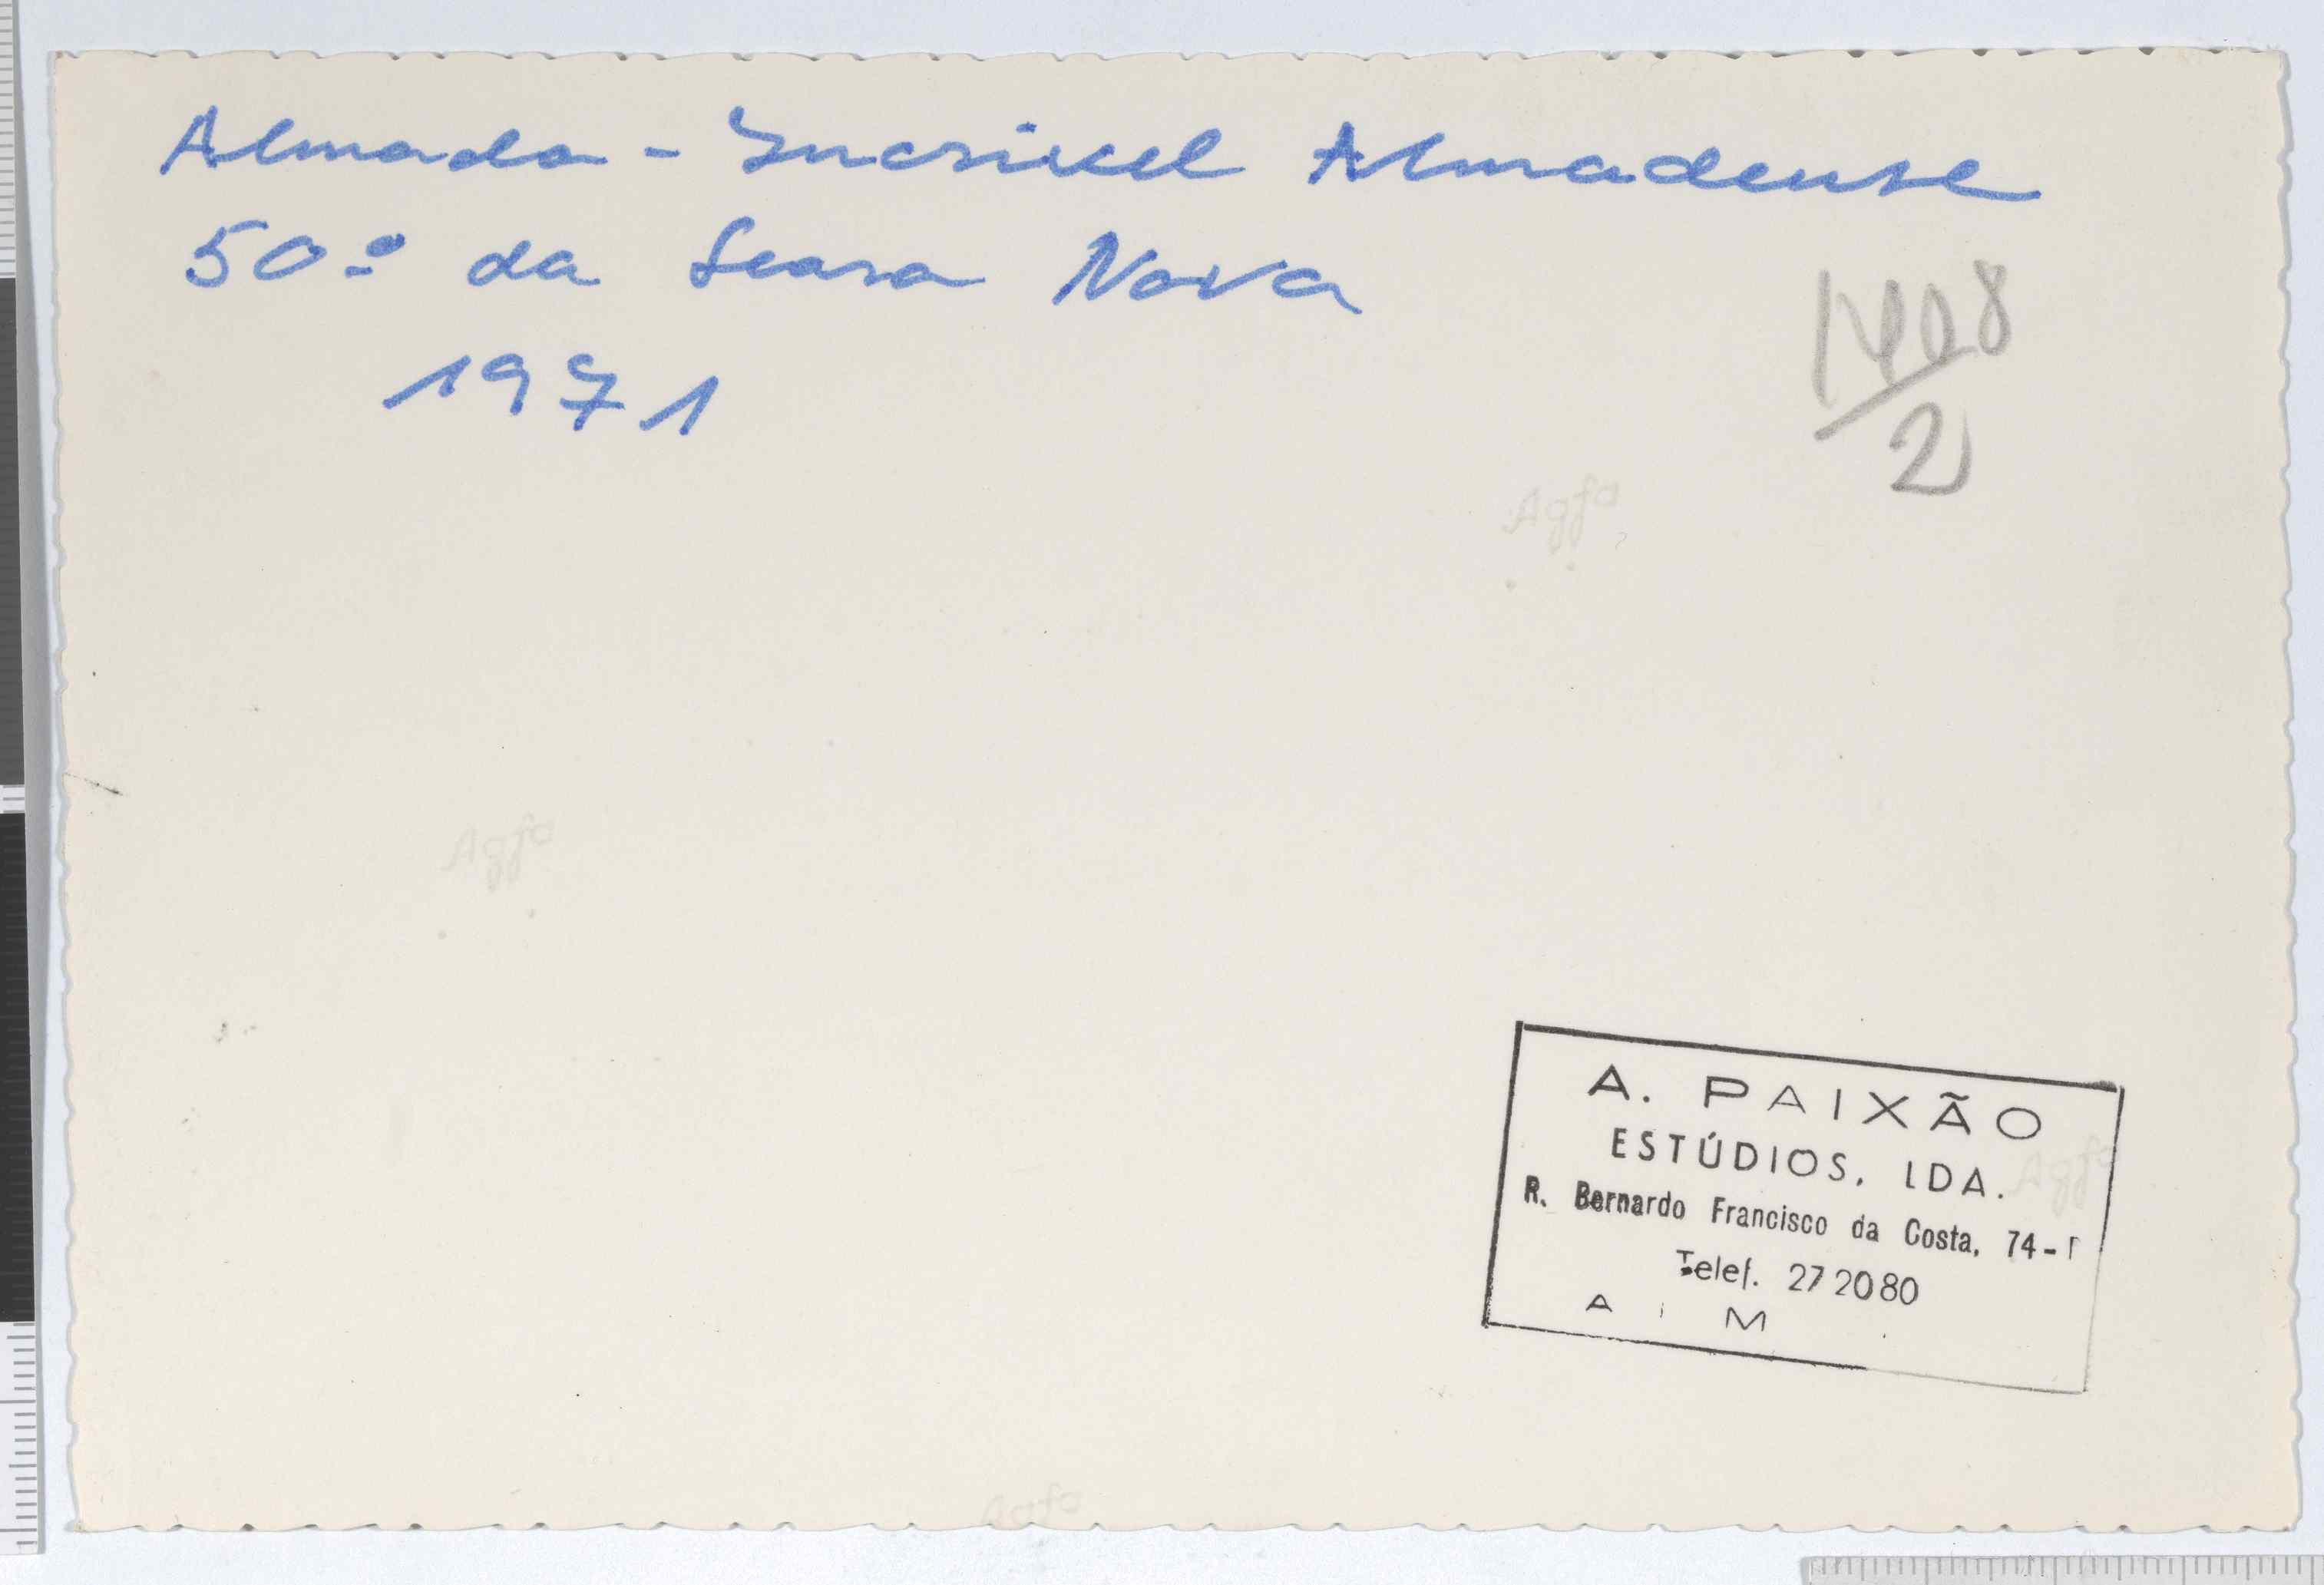 Almada - Incrivel Almadense
50º da Seara Nova
1971
1408/2
Agfa
Agfa
A. PAIXÃO
ESTÚDIOS, LDA.
R. Bernardo Francisco da Costa, 74-
Telef. 27 20 80
A M
Agfa
Agfa